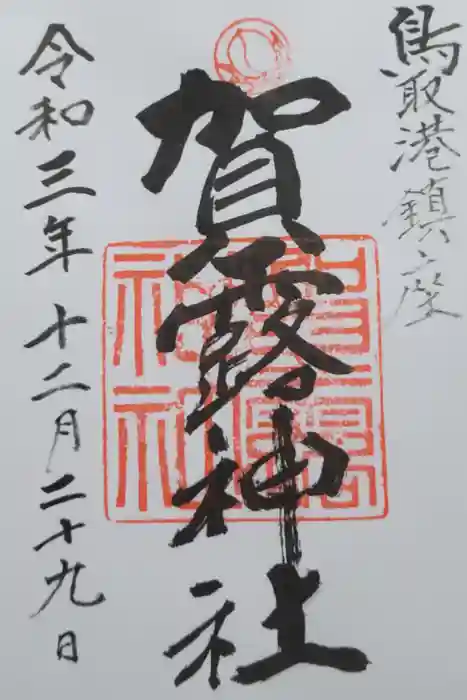 鳥取港鎮座
賀露神社
令和三年十二月二十九日